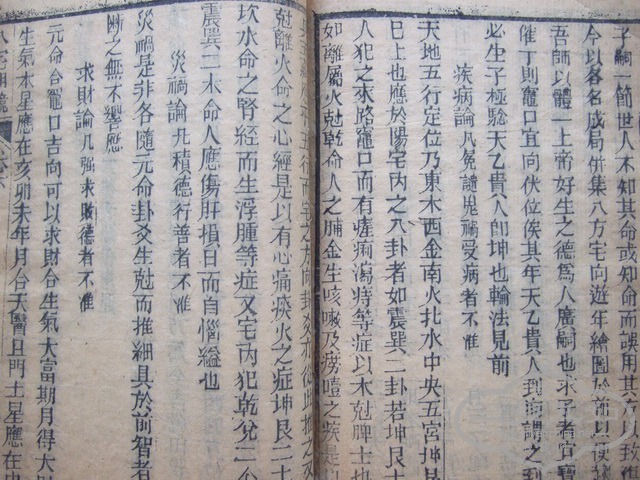 子嗣一節世人不知其命或知命而誤用其以致
今以各名成局併集八方宅向遊年繪圖於前以便
吾師以體一上帝好生之德為人廣嗣也求子者
催丁則竈口宜向伏位俟其年天乙貴人到
必生子極驗天乙貴人卽坤也輪法見前
疾病論凡冤譴鬼禍受病者不准
天地五行定位乃東木西金南火北水中央五宮坤
巳上也應於陽宅內之八卦者如震巽二卦若坤艮
人犯之來路竈口而有瘧痢瘍痔等症以木尅脾土
如離屬火尅乾命人之肺金生咳嗽乃癆噎之疾是
尅離火命之心經是以有心痛痰火之症坤艮二土
坎水命之腎經而生浮腫等症又宅內犯乾兌二
震巽二木命人應傷肝損目而自惱縊也
災禍論凡積德行善者不准
災禍是非各隨元命卦爻生尅而推細具於前智者
斷之無不響應
求財論凡強求敗德者不准
元命合竈口吉向可以求財合生氣大富期月得大
生氣木星應在亥卯未年月合天醫且門土星應在